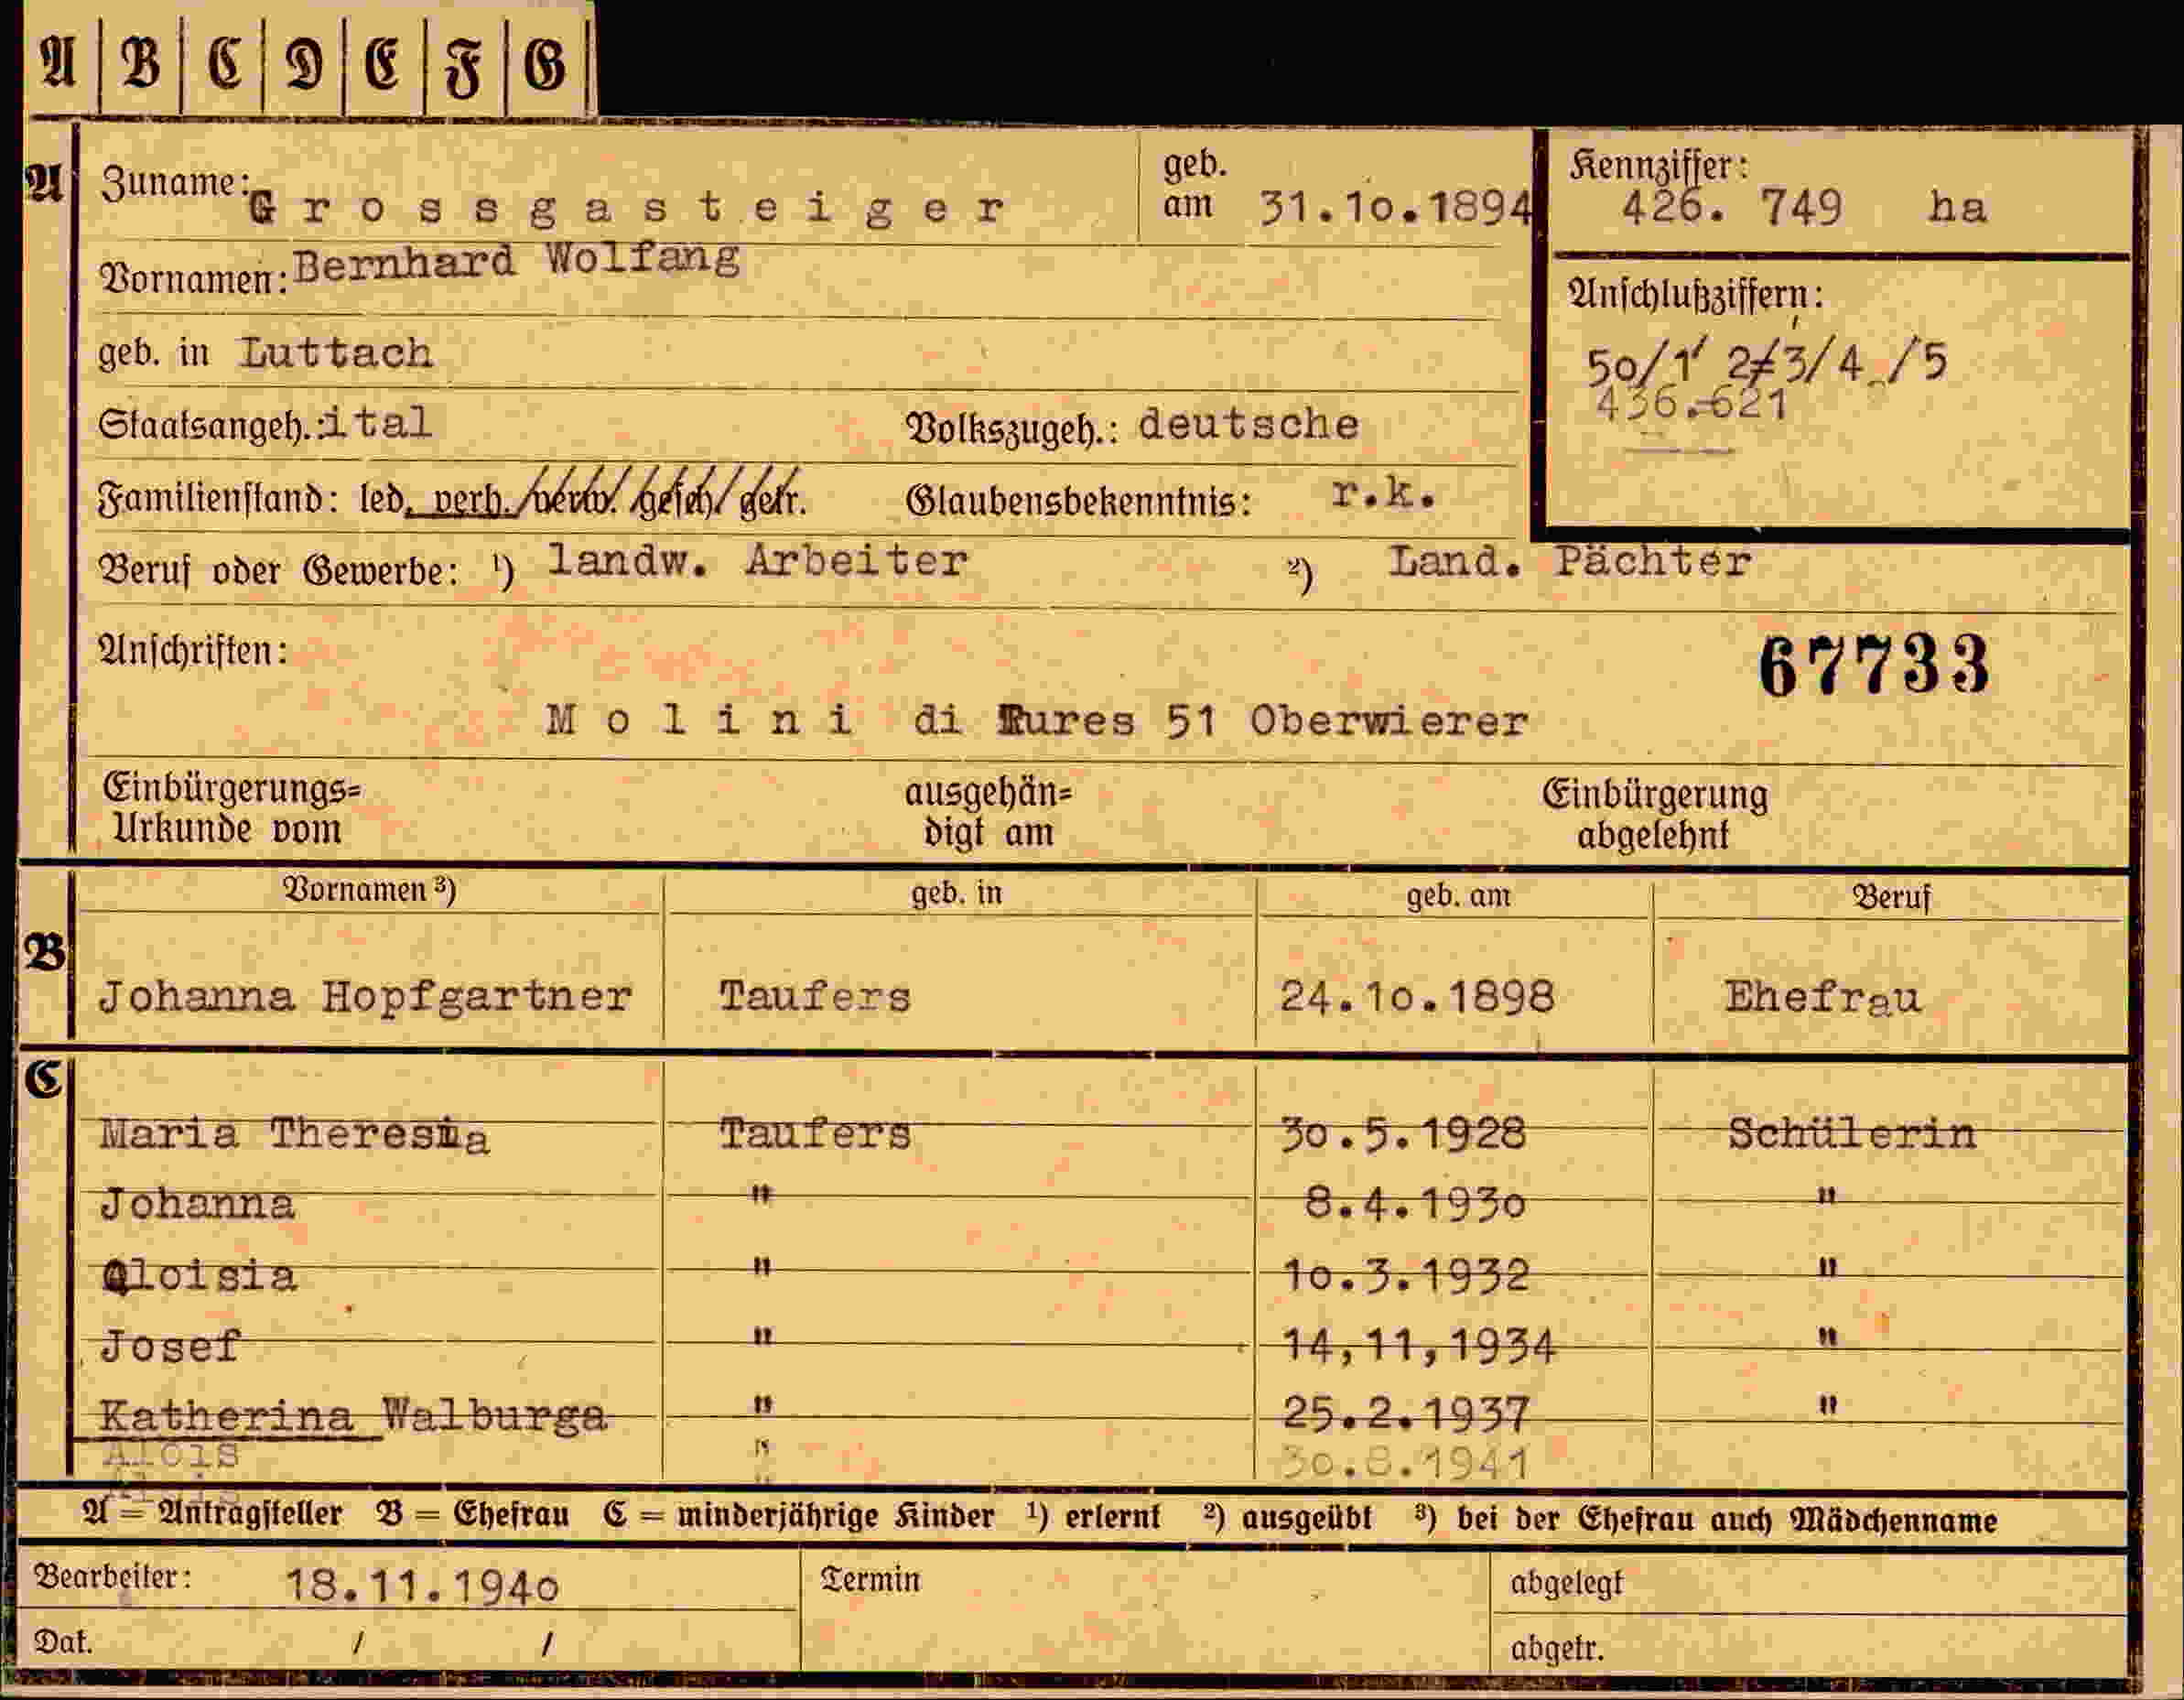 A B C D E F G
A Zuname: Grossgasteiger geb. am 31.10.1894 Kennziffer: 426. 749 ha
Vornamen: Bernhard Wolfang
Anschlußziffern:
geb. in Luttach 50/1 2/3/4 /5
436.621
Staatsangeh.: ital Volkszugeh.: deutsche
Familienstand: led. verh. verw. gesch. getr. Glaubensbekenntnis: r.k.
Beruf oder Gewerbe: ¹) landw. Arbeiter ²) Land. Pächter
Anschriften: 67733
Molini di Tures 51 Oberwierer
Einbürgerungs= ausgehän= Einbürgerung
Urkunde vom digt am abgelehnt
Vornamen ³) geb. in geb. am Beruf
B
Johanna Hopfgartner Taufers 24.10.1898 Ehefrau
C
Maria Theresia Taufers 30.5.1928 Schülerin
Johanna " 8.4.1930 "
Aloisia " 10.3.1932 "
Josef " 14,11,1934 "
Katherina Walburga " 25.2.1937 "
Alois " 30.8.1941
A = Antragsteller B = Ehefrau C = minderjährige Kinder ¹) erlernt ²) ausgeübt ³) bei der Ehefrau auch Mädchenname
Bearbeiter: 18.11.1940 Termin abgelegt
Dat. / / abgetr.